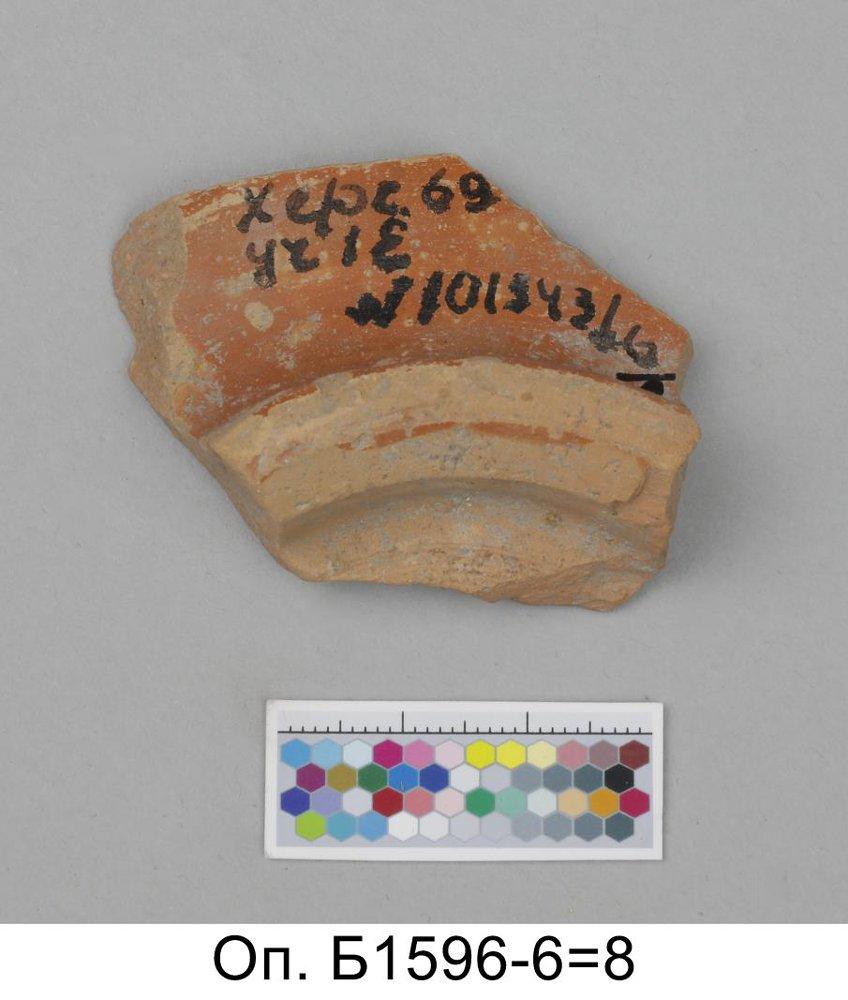 Херс. 69
уч 1 Е
№ 101343/76
Оп. Б1596-6=8